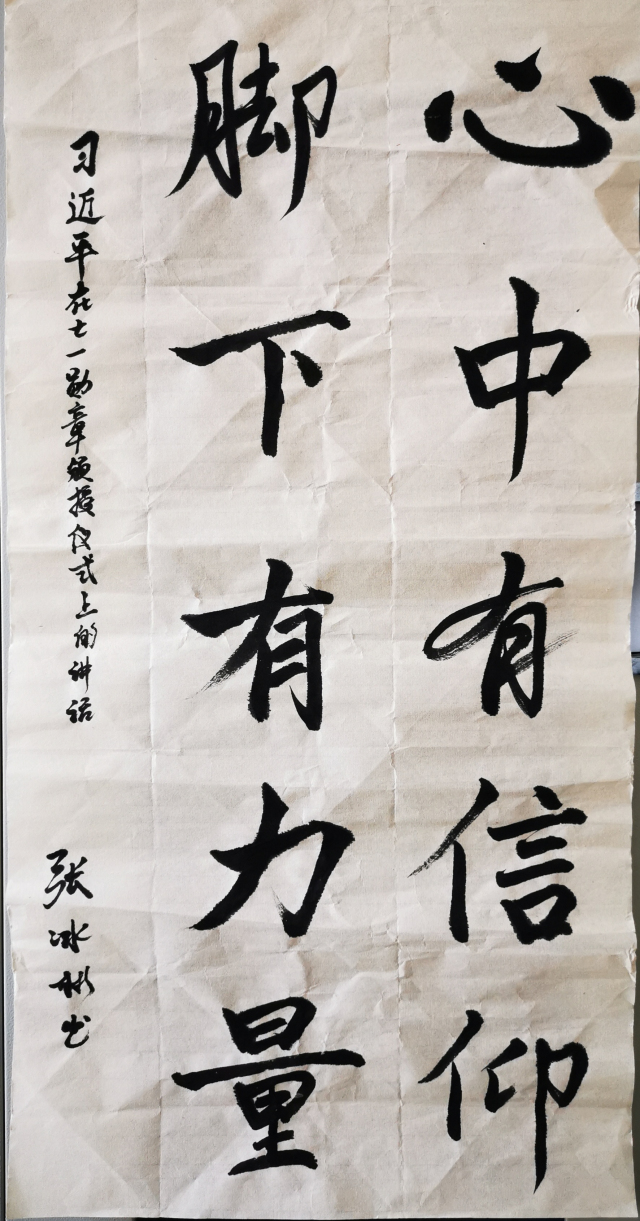 心中有信仰
脚下有力量
习近平在七一勋章颁授仪式上的讲话
张冰彬书